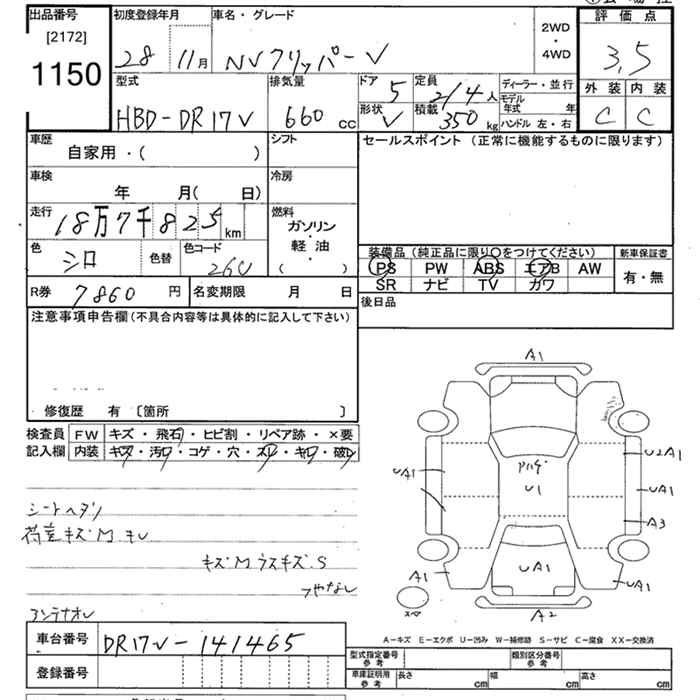 出品番号
[2172]
1150
初度登録年月
28 11月
車名・グレード
NVクリッパーV
2WD
・
4WD
評価点
3,5
型式
HBD-DR17V
排気量
660 CC
ドア
5
定員
2/4人
形状
V
積載
350 kg
ディーラー・並行
モデル年式 年
ハンドル 左・右
外装 内装
C C
車歴
自家用・( )
シフト
セールスポイント (正常に機能するものに限ります)
車検
年 月( 日)
冷房
走行
18万7千825 km
燃料
ガソリン
・
軽油
( )
色
シロ
色替
色コード
26U
装備品 (純正品に限り○をつけてください)
PS PW ABS エアB AW
SR ナビ TV カワ
新車保証書
有・無
R券 7860 円
名変期限 月 日
後日品
注意事項申告欄(不具合内容等は具体的に記入して下さい)
修復歴 有 〔箇所 〕
検査員記入欄
FW キズ・飛石・ヒビ割・リペア跡・×要
内装 キズ・汚レ・コゲ・穴・スレ・キレ・破レ
シートヘタリ
荷室キズM キレ
キズM ウスキズS
つやなし
コンテナオレ
車台番号 DR17V-141465
登録番号
A1
UA1
U2A1
UA1
A3
U1
UA1
A1
A2
UA1
スペア
A-キズ E-エクボ U-凹み W-補修跡 S-サビ C-腐食 XX-交換済
型式指定番号 参考
類別区分番号 参考
車庫証明用 参考
長さ cm
幅 cm
高さ cm